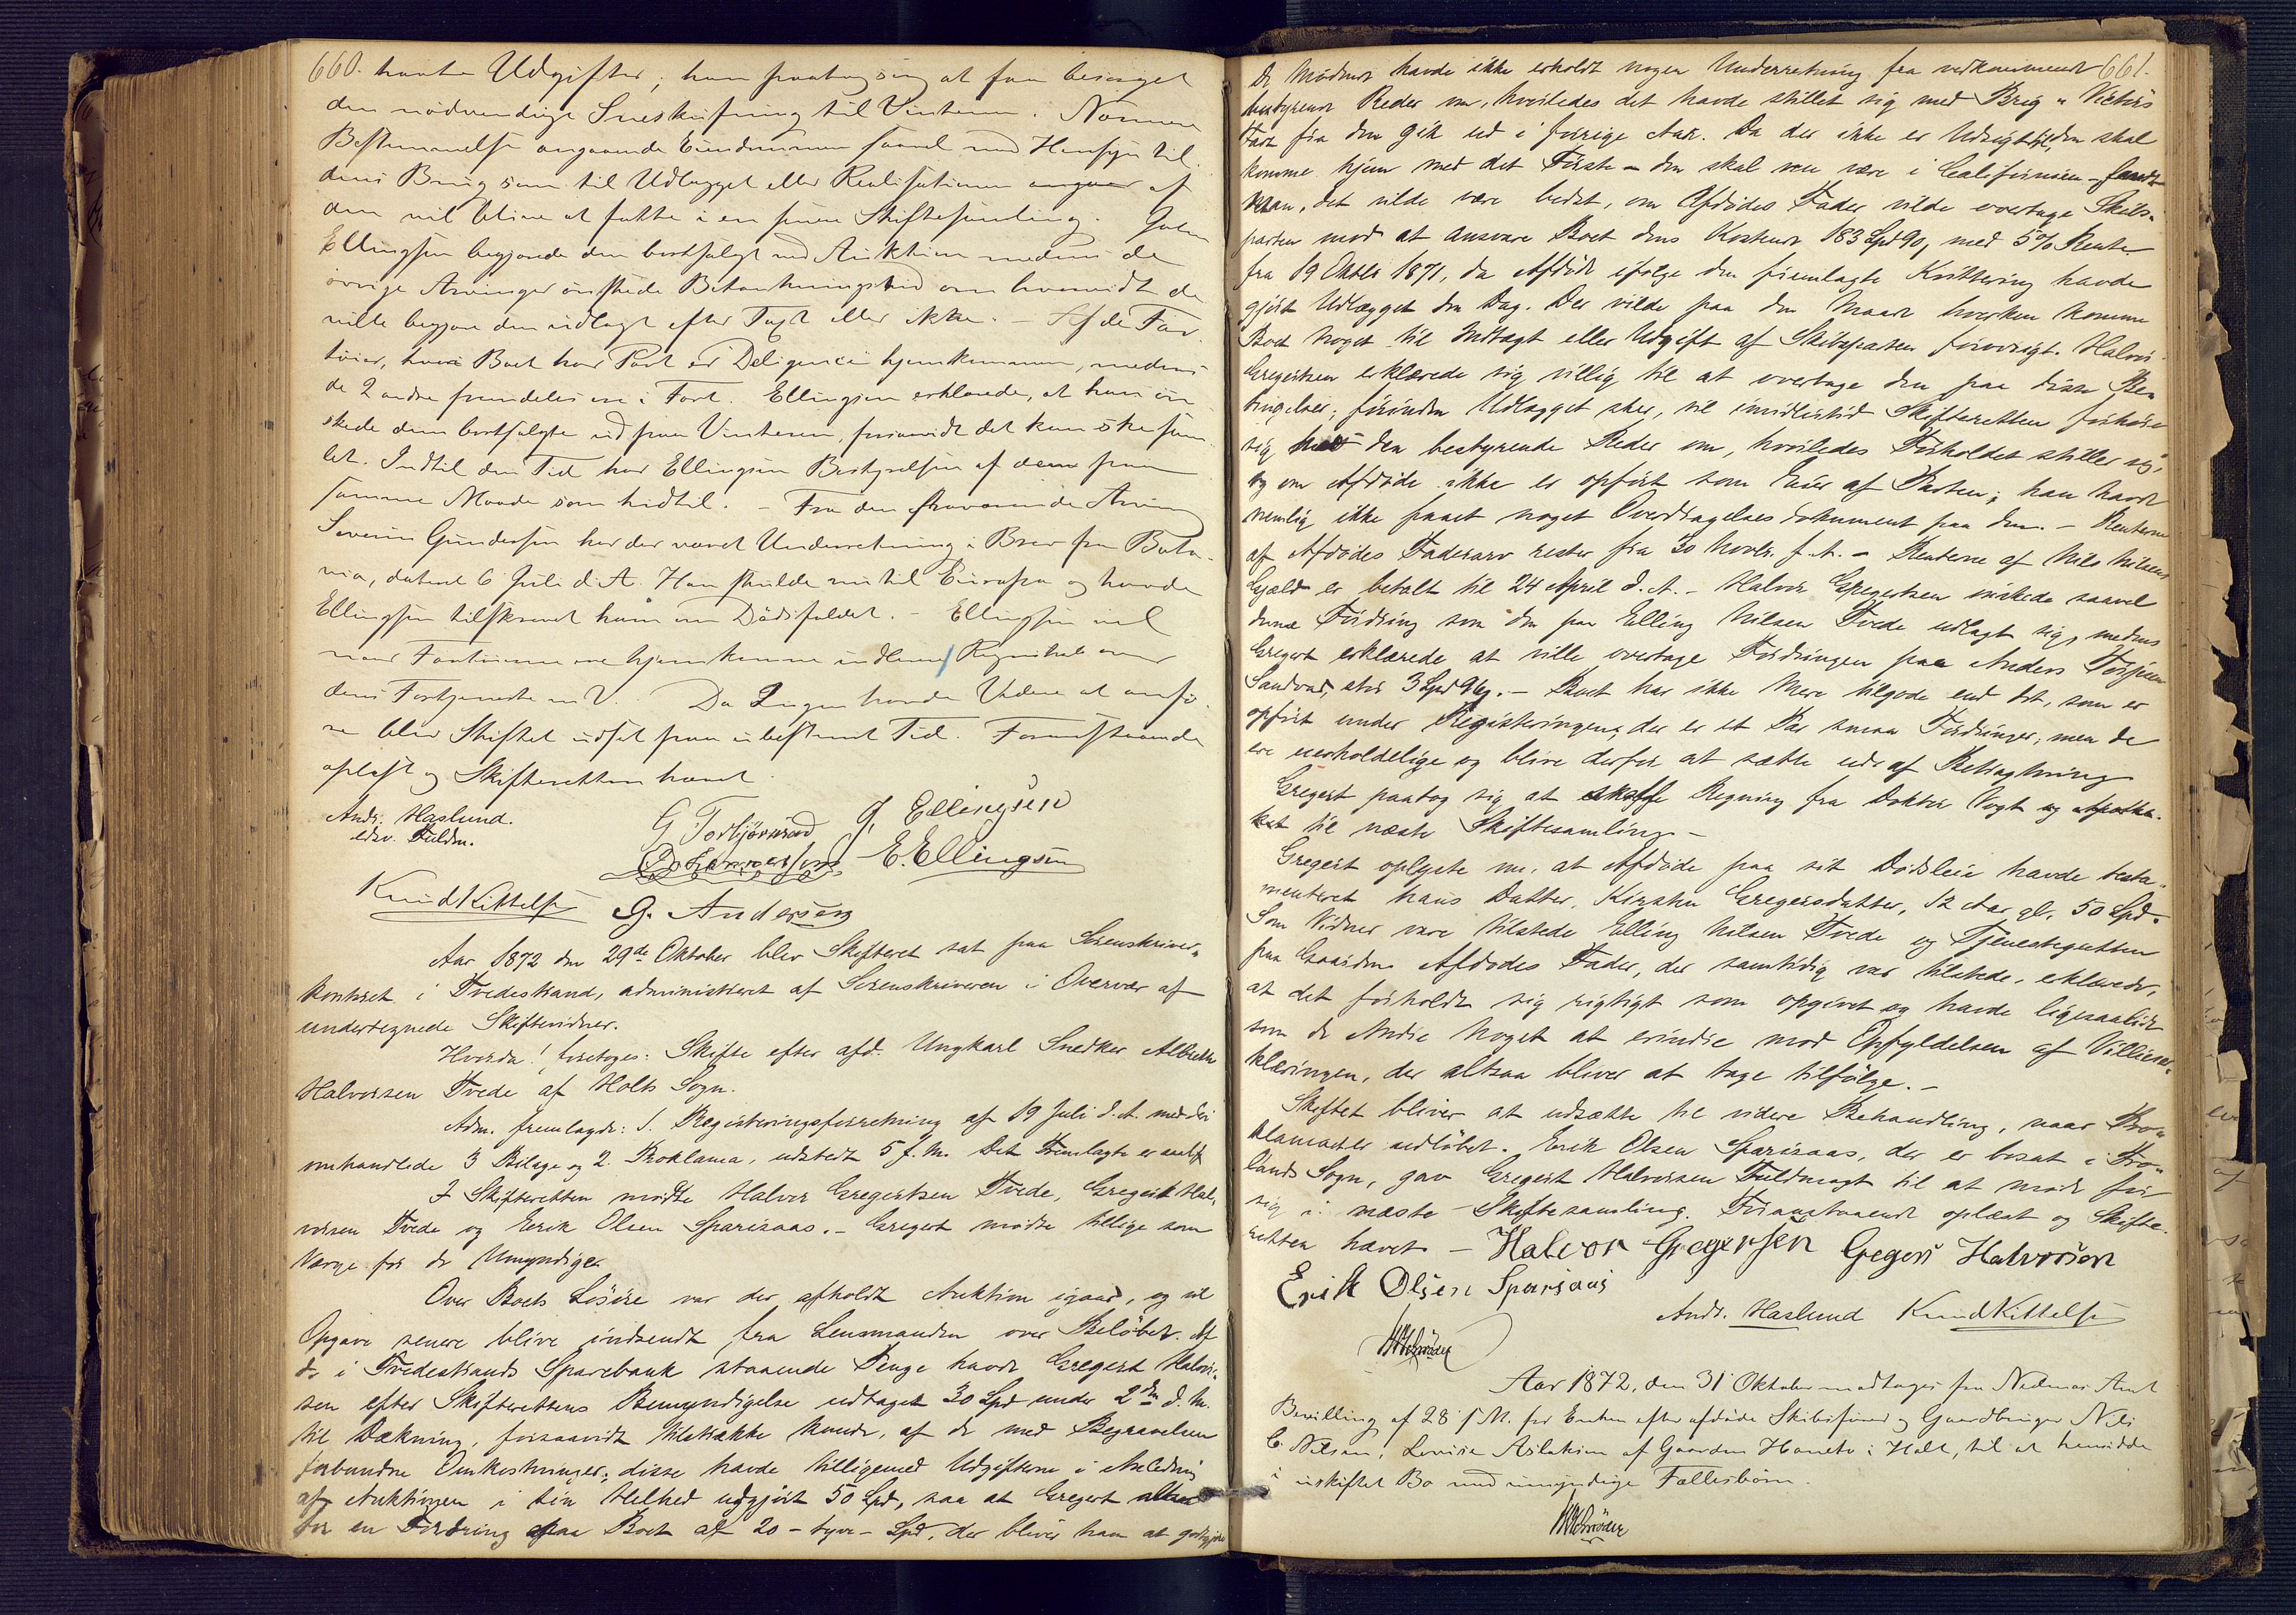 660. havte Udgifter; han paatog sig at faa besørget
den nødvendige Sneskufning til Vinteren. Nærmere
Bestemmelse angaaende Eiendommen saavel med Hensyn til
dens Brug som til Udlægget eller Realisationen af
den vil blive at fatte i en senere Skiftesamling.
Ellingsen begjærede den bortsolgt ved Auktion medens de
øvrige Arvinger ønskede Betænkningstid om hvorvidt de
ville begjære den udlagt efter Taxt eller ikke. – Af de Far-
tøier, hvori Boet har Part er Deligence hjemkommen, medens
de 2 andre fremdeles ere i Fart. Ellingsen erklærede, at han øn-
skede dem bortsolgte ud paa Vinteren, forsaavidt det kan ske sam-
let. Indtil den Tid har Ellingsen Bestyrelsen af dem paa
samme Maade som hidtil. – Fra den fraværende Arving
Severin Gundersen har der været Underretning i Brev fra Bata-
via, dateret 6 Juli d. A. Han skulde nu til Europa og havde
Ellingsen tilskrevet ham om Dødsfaldet. – Ellingsen vil
naar Fartøierne ere hjemkomne indlevere Regnskab over
dens Fortjeneste m. V. Da Ingen havde Videre at anfø-
re blev Skiftet udsat paa ubestemt Tid. Foranstaaende
oplæst og Skifteretten hævet.
Andr. Haslund. G Torbjørnsen J. Ellingsen
edsv. Fuldm. E. Ellingsen
Knud Kittelsen G. Andersen
Aar 1872 den 29de Oktober blev Skifteret sat paa Sorenskriver-
kontoret i Tvedestrand, administreret af Sorenskriveren i Overvær af
undertegnede Skiftevidner.
Hvorda! foretoges: Skifte efter afd. Ungkarl Snedker Albreth
Halvorsen Tvede af Holts Sogn.
Adm. fremlagde: 1. Registreringsforretning af 19 Juli d. A. med deri
omhandlede 3 Bilage og 2. Proklama, udstedt 5 f. M. Det Fremlagte er saalydende
I Skifteretten mødte Halvor Gregertsen Tvede, Gregert Hal-
vorsen Tvede og Erik Olsen Sparsaas. – Gregert mødte tillige som
Værge for de Umyndige.
Over Boets Løsøre var der afholdt Auktion igaar, og vil
Opgave senere blive indsendt fra Lensmanden over Beløbet. Af
de i Tvedestrands Sparebank staaende Penge havde Gregert Halvor-
sen efter Skifterettens Bemyndigelse udtaget 30 Spd under 2den d. M.
til Dækning, forsaavidt tilstrække kunde, af de med Begravelsen
forbundne Omkostninger; disse havde tilligemed Udgifterne i Anledning
af Auktionen i sin Helhed udgjort 50 Spd, saa at Gregert altsaa
har en Fordring paa Boet af 20 – tyve – Spd, der bliver ham at godtgjøre
De Mødende havde ikke erholdt nogen Underretning fra vedkommende 661.
bestyrende Reder om, hvorledes det havde stillet sig med Brig "Victors
Fart fra den gik ud i forrige Aar. Da der ikke er Udsigt til, den skal
komme hjem med det Første – den skal nu være i Californien – fandt
man, det vilde være bedst, om Afdødes Fader vilde overtage Skibs-
parten mod at ansvare Boet dens Kostende 183 Spd 90, med 5% Rente
fra 19 Oktbr 1871, da Afdøde ifølge den fremlagte Kvittering havde
gjort Udlægget den Dag. Der vilde paa den Maade hverken komme
Boet Noget til Indtægt eller Udgift af Skibsparten forøvrigt. Halvor
Gregertsen erklærede sig villig til at overtage den paa disse Be-
tingelser; forinden Udlægget sker, vil imidlertid Skifteretten forhøre
sig hos den bestyrende Reder om, hvorledes Forholdet stiller sig,
og om Afdøde ikke er opført som Eier af Parten; han havde
nemlig ikke faaet noget Overdragelsesdokument paa den. – Renterne
af Afdødes Faderarv rester fra 30 Novbr. f. A. – Renterne af Nils Nilsens
Gjæld er betalt til 24 April d. A. – Halvor Gregertsen ønskede saavel
denne Fordring som den paa Elling Nilsen Tvede udlagt sig, medens
Gregert erklærede at ville overtage Fordringen paa Anders Torjusen
Sandvad, stor 3 Spd 96 s. – Boet har ikke Mere tilgode end det, som er
opført under Registreringen; der er et Par smaa Fordringer, men de
ere uerholdelige og blive derfor at sætte ud af Betragtning
Gregert paatog sig at skaffe Regning fra Doktor Vogt og Apothe-
ket til næste Skiftesamling. –
Gregert oplyste nu, at Afdøde paa sit Dødsleie havde testa-
menteret hans Datter, Kirsten Gregersdatter, 12 Aar gl. 50 Spd.
Som Vidner vare tilstede Elling Nilsen Tvede og Tjenestegutten
paa Gaarden. Afdødes Fader, der samtidig var tilstede, erklærede,
at det forholdt sig rigtigt som opgivet og havde ligesaalidt
som de Andre Noget at erindre mod Opfyldelsen af Villieser-
klæringen, der altsaa bliver at tage tilfølge. –
Skiftet bliver at udsætte til videre Behandling, naar Pro-
klamaet er udløbet. Erik Olsen Sparsaas, der er bosat i Fro-
lands Sogn, gav Gregert Halvorsen Fuldmagt til at møde for
sig i næste Skiftesamling. Foranstaaende oplæst og Skifte-
retten hævet – Halvor Gregersen Gregers Halvorsen
Erik Olsen Sparsaas
Andr. Haslund Knud Kittelsen
Aar 1872, den 31 Oktober modtages fra Nedenæs Amt
Bevilling af 28 f. M. for Enken efter afdøde Skibsfører og Gaardbruger Nils
C. Nilsen, Lovise Aslaksen af Gaarden Haneto i Holt, til at hensidde
i uskiftet Bo med umyndige Fællesbørn.